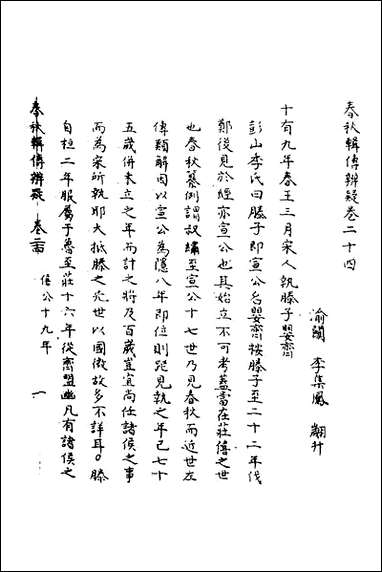 春秋輯傳辨疑卷二十四
渝關 李集鳳 翽升
十有九年春王三月宋人執滕子嬰齊
彭山李氏曰滕子即宣公名嬰齊按滕子至二十二年伐
鄭後見於經亦宣公也其始立不可考蓋當在莊僖之世
也春秋纂例謂叔繡至宣公十七世乃見春秋而近世左
傳類解因以宣公為隱八年即位則從見執之年已七十
五歲併未立之年而計之將及百歲豈宜尚任諸侯之事
而為宋所執耶大抵滕之先世以國微故多不詳耳○滕
自桓二年服屬于魯至莊十六年從齊盟幽凡有諸侯之
春秋輯傳辨疑 卷二十四
僖公十九年
一